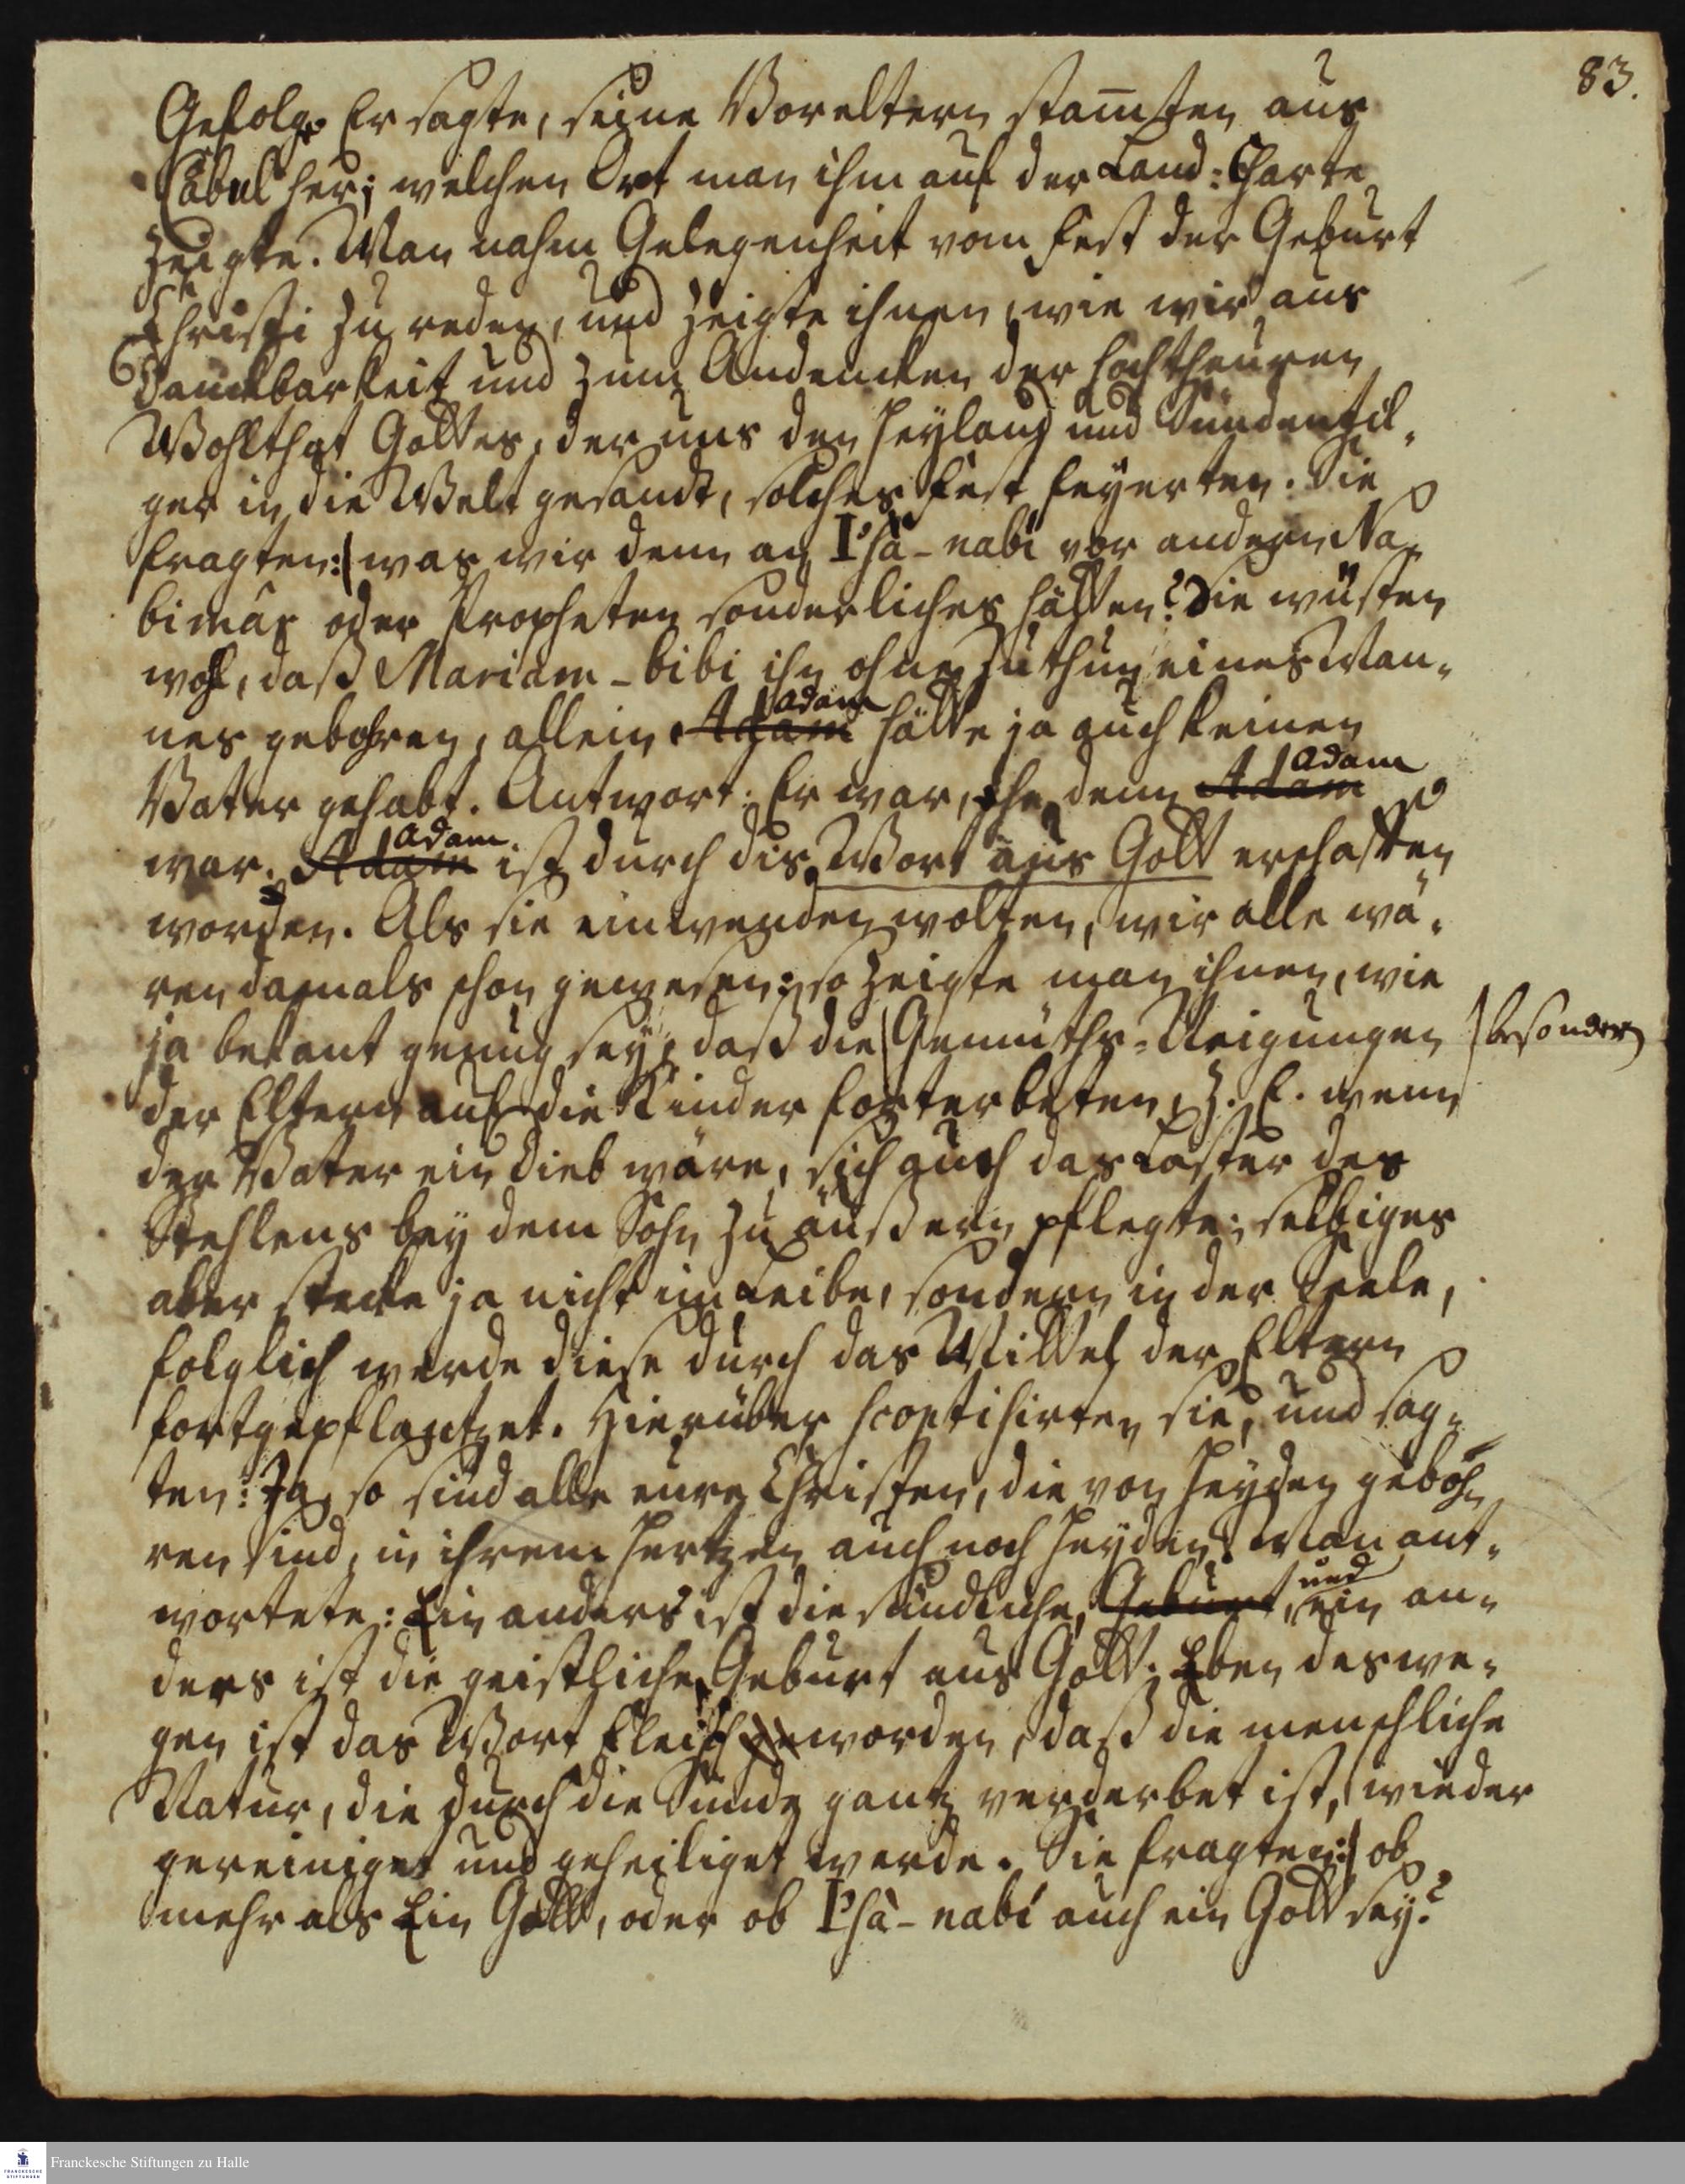 83.
Gefolge. Er sagte, seine Voreltern stam̅ten aus
Cabul her; welchen Ort man ihm auf der Land-Charte
zeigte. Man nahm Gelegenheit vom Fest der Geburt
Christi zu reden, und zeigte ihnen, wie wir aus
Danckbarkeit und zum Andencken der hochtheuren
Wohlthat Gottes, der uns den Heyland und Sündentil-
ger in die Welt gesandt, solches Fest feyerten. Sie
fragten: was wir denn an I'sà-nabí vor andern Na-
bimâr oder Propheten sonderliches hätten? Sie wüsten
wohl, daß Mariam-bibi ihn ohne Zuthun eines Man-
nes gebohren, allein Adam Adam hätte ja auch keinen
Vater gehabt. Antwort: Er war, ehe denn Adam Adam
war. Adam Adam ist durch dis Wort aus Gott erschaffen
worden. Als sie einwenden wolten, wir alle wä-
ren damals schon gewesen: so zeigte man ihnen, wie
ja bekant genug sey, daß die Gemüths-Neigungen besondern
der Eltern auf die Kinder forterbeten, z. E. wenn
der Vater ein Dieb wäre, sich auch das Laster des
Stehlens bey dem Sohn zu äußern pflegte; selbiges
aber stecke ja nicht im Leibe, sondern in der Seele,
folglich werde diese durch das Mittel der Eltern
fortgepflantzet. Hierüber scoptisirten sie, und sag-
ten: Ja, so sind alle eure Christen, die von Heyden geboh-
ren sind, in ihrem Hertzen auch noch Heyden. Man ant-
wortete: Ein anders ist die sündliche, Geburt, und ein an-
ders ist die geistliche Geburt aus Gott. Eben deswe-
gen ist das Wort Fleisch geworden, daß die menschliche
Natur, die durch die Sünde gantz verderbet ist, wieder
gereiniget und geheiliget werde. Sie fragten: ob
mehr als Ein Gott, oder ob I'sà-nabí auch ein Gott sey?
Franckesche Stiftungen zu Halle